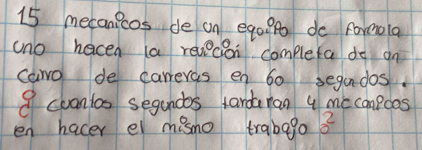 15 mecanicos de un equipo de formula
uno hacen la revicion completa de un
carro de carreras en 60 segundos.
¿ cuantos segundos tardaran 4 mecanicos
en hacer el mismo trabajo ?